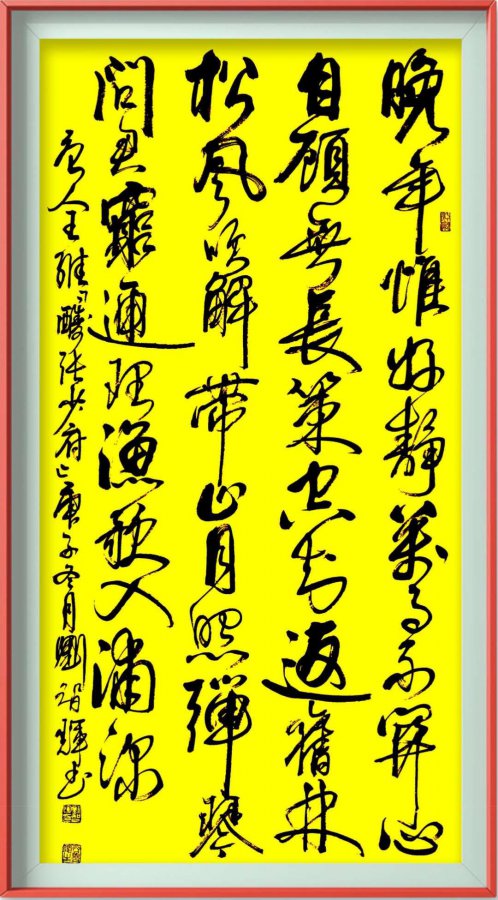 晚年惟好靜萬事不關心
自顧無長策空知返舊林
松風吹解帶山月照彈琴
問君窮通理漁歌入浦深
唐人王維酬張少府庚子冬月劉智輝書